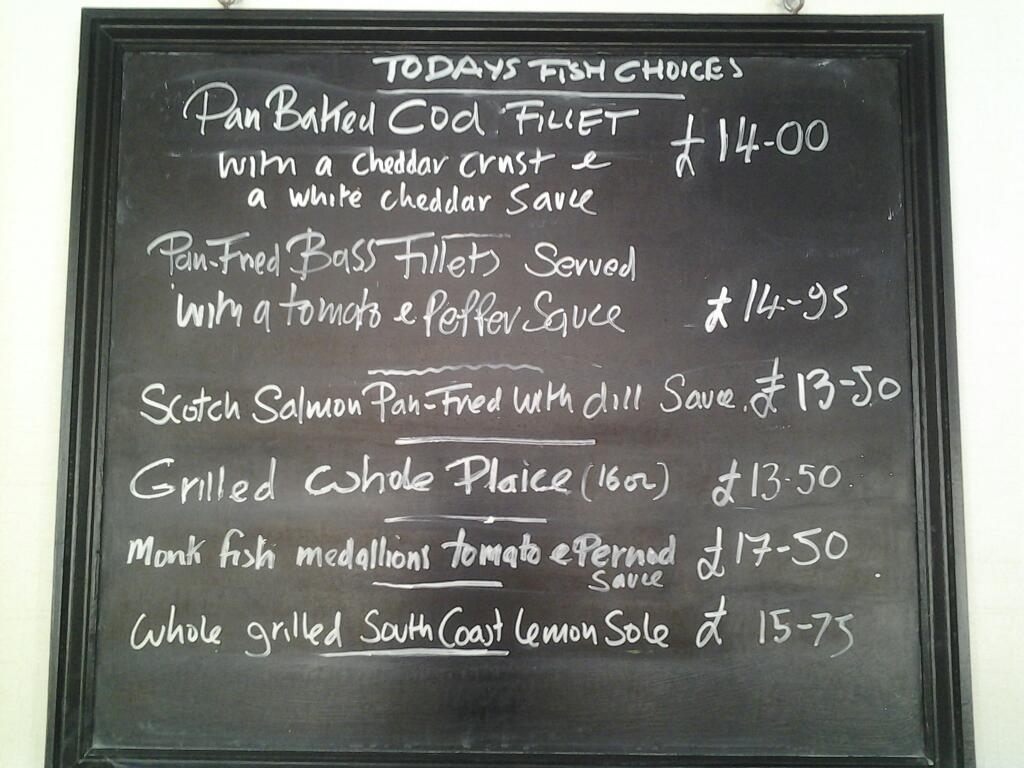 TODAYS FISH CHOICES
Pan Baked Cod FILLET £14-00
with a cheddar crust e
a white cheddar Sauce
Pan-Fried Bass Fillets Served
with a tomato e Pepper Sauce £14-95
Scotch Salmon Pan-Fried with dill Sauce. £13-50
Grilled whole Plaice (16oz) £13-50
Monk fish medallions tomato e Pernod £17-50
Sauce
Whole grilled South Coast Lemon Sole £ 15-75